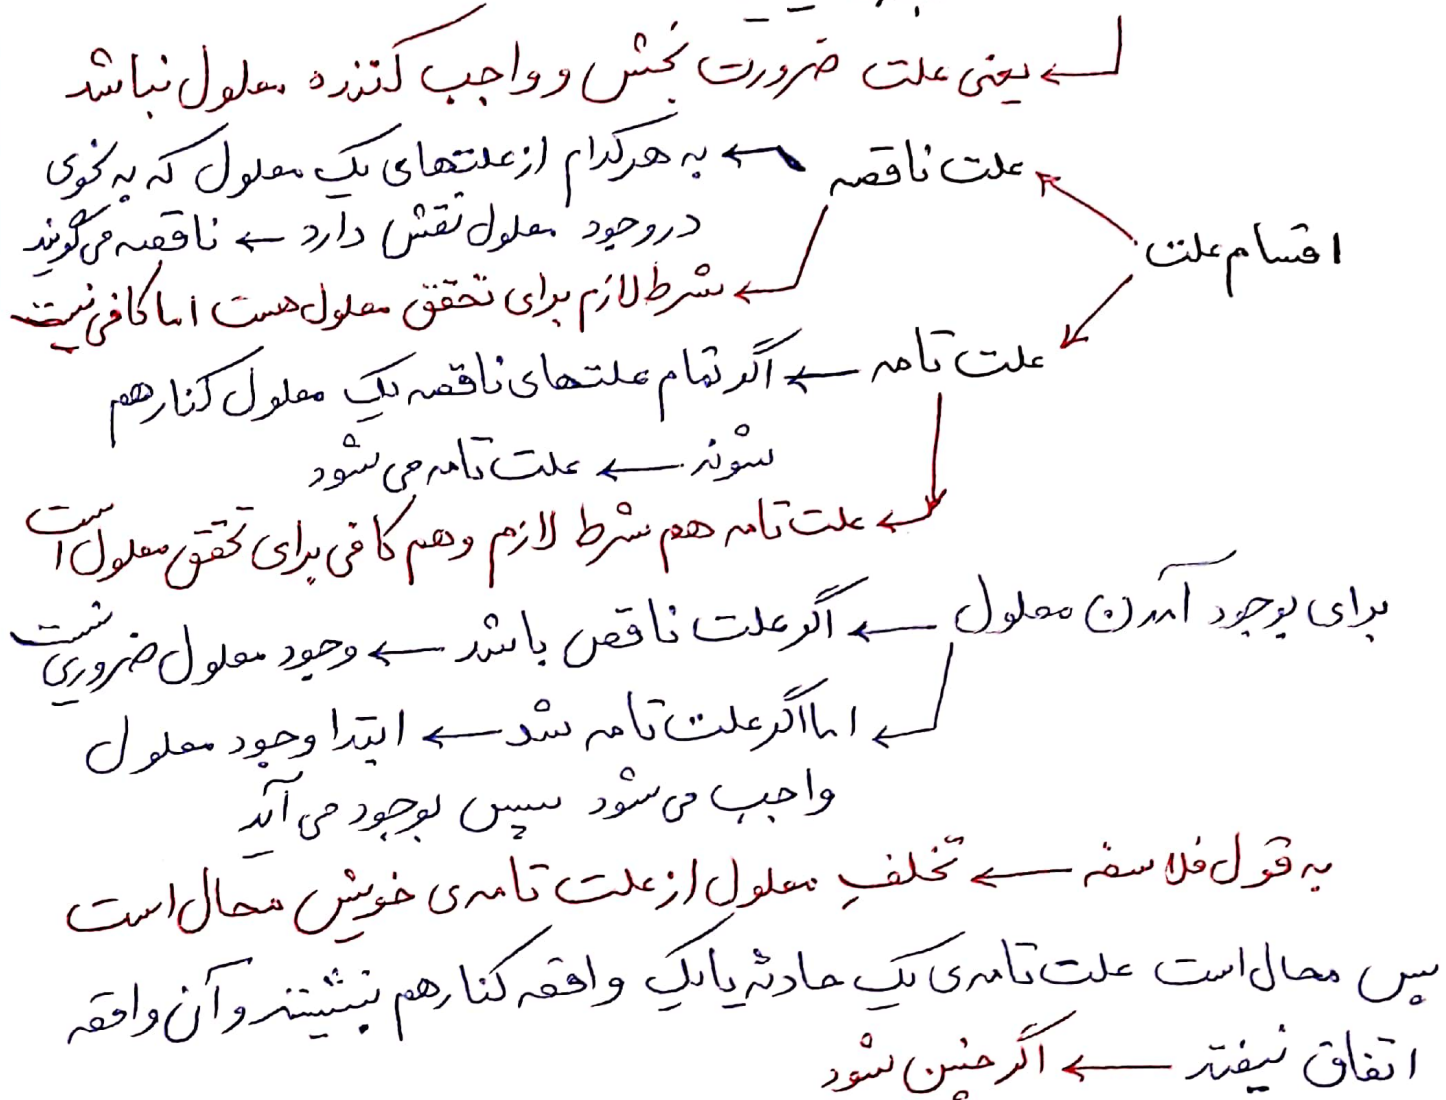 ← یعنی علت ضرورت بخش و واجب کننده معلول نباشد
اقسام علت
علت ناقصه ← به هرکدام از علتهای یک معلول که به نحوی
در وجود معلول نقش دارد ← ناقصه می گویند
← شرط لازم برای تحقق معلول هست اما کافی نیست
علت تامه ← اگر تمام علتهای ناقصه یک معلول کنار هم
شوند ← علت تامه می شود
← علت تامه هم شرط لازم و هم کافی برای تحقق معلول است
برای بوجود آمدن معلول ← اگر علت ناقص باشد ← وجود معلول ضروری نیست
← اما اگر علت تامه شد ← ابتدا وجود معلول
واجب می شود سپس بوجود می آید
به قول فلاسفه ← تخلفِ معلول از علت تامه ی خویش محال است
پس محال است علت تامه ی یک حادثه یا یک واقعه کنار هم بنشینند و آن واقعه
اتفاق نیفتد ← اگر چنین شود